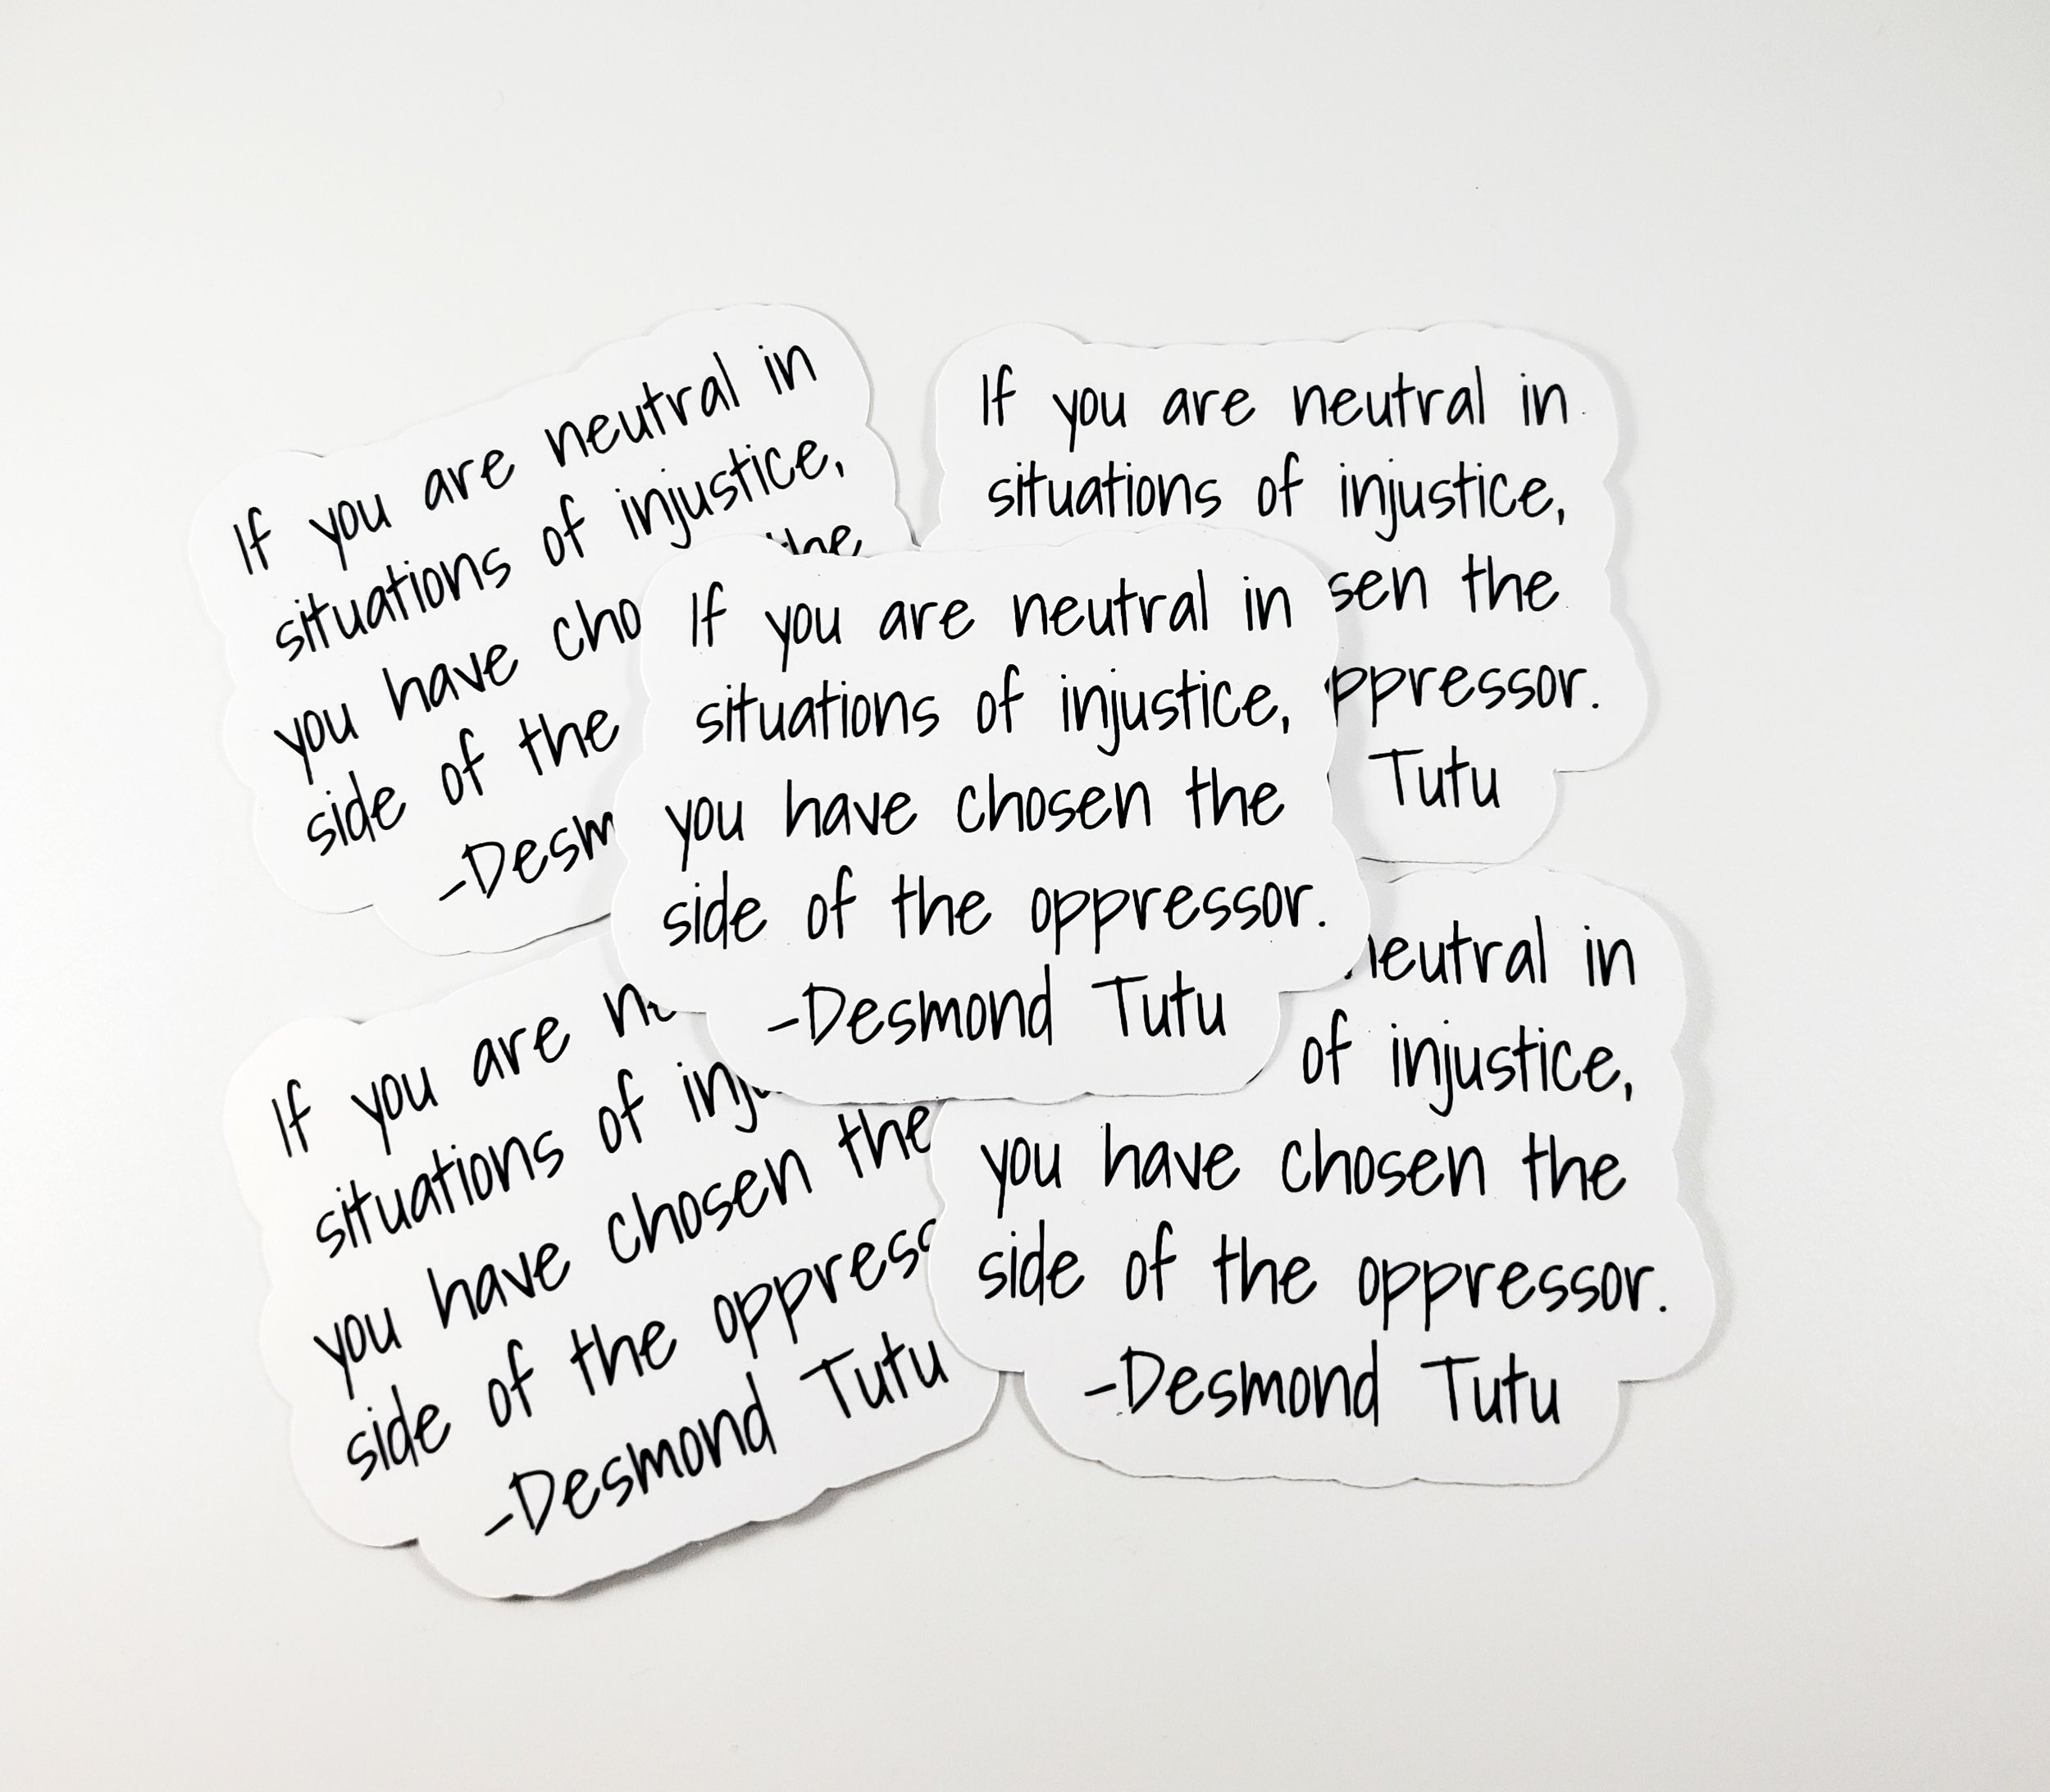 If you are neutral in
situations of injustice,
the
you have cho
side of the
-Desm
If you are neutral in
situations of injustice,
sen the
ppressor.
Tutu
If you are neutral in
situations of injustice,
you have chosen the
side of the oppressor.
-Desmond Tutu
If you are
situations of inj
you have chosen the
side of the oppress
-Desmond Tutu
neutral in
of injustice,
you have chosen the
side of the oppressor.
-Desmond Tutu